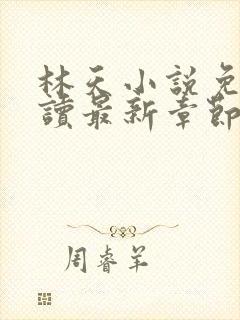 林天小説免
讀最新章節
周睿羊